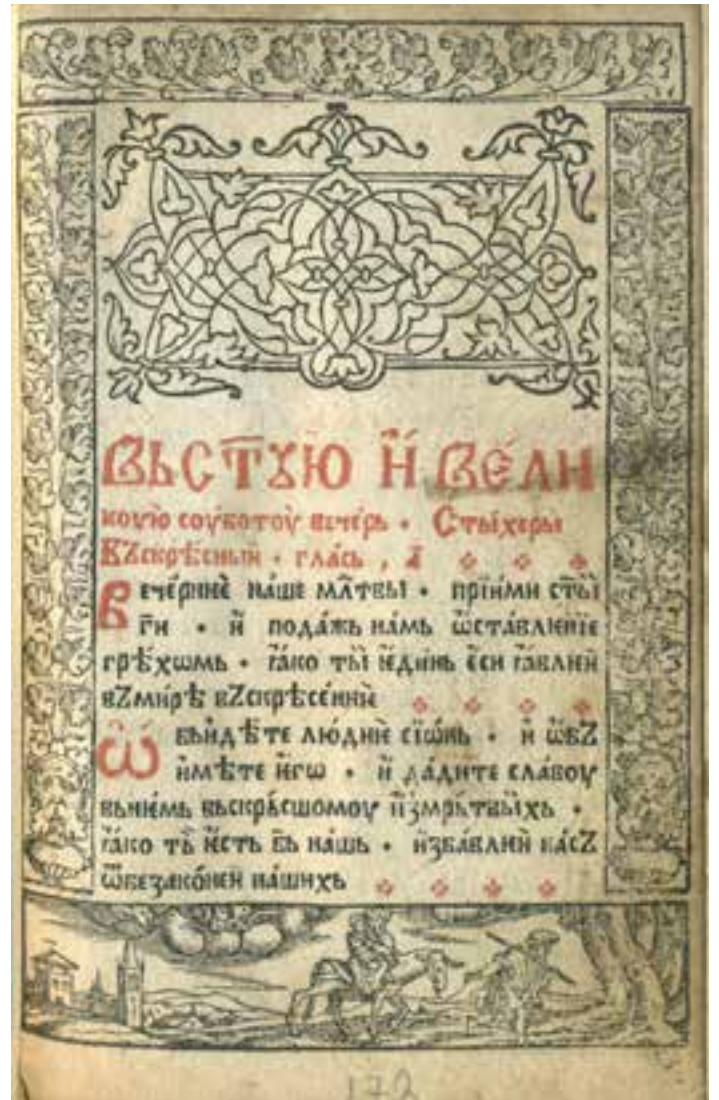 вьст҃ꙋю и҆ вели
коую соуботоу вечерь · Стыхеры
вꙁскрѣсныи · гласъ , а҃
Вече́рниѐ на́ше мл҃твы · прїими ст҃ы
гн҃ · и҆ пода́жь на́мь ѿставлѥнїе
грѣ́хѡмь · ꙗ҆ко ты̀ ѥди́нь ѐси ꙗ҆влѥи
вꙁмирѣ вꙁскрѣсе́ниѐ
Ѡбьидѣ́те лю́диѐ сїѡ́нь · и҆ ѡ҆бꙁ
имѣ́те ѥ҆гѡ · и҆ да́дите сла́воу
вьнѥмь вьскрьсшомоу из̾мрьтвыихь ·
ꙗ҆ко тъ̀ ѥсть бь҃ на́шь · и҆збавлѥи на́сꙁ
ѿбезако́нѥи на́шихь
172